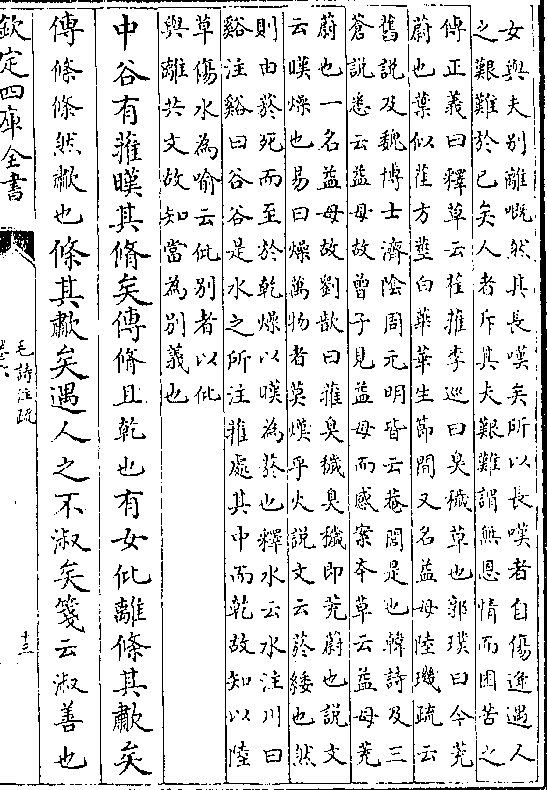 女與夫別離嘅然其長嘆矣所以長嘆者自傷逢遇人
之艱難於已矣人者斥其夫艱難謂無恩情而困苦之
傳正義曰釋草云萑蓷李巡曰臭穢草也郭璞曰今茺
蔚也葉似萑方莖白華華生節間又名益母陸璣疏云
舊說及魏博士濟陰周元明皆云菴䕡是也韓詩及三
蒼說悉云益母故曽子見益母而感案本草云益母茺
蔚也一名益母故劉歆曰蓷臭穢臭穢即茺蔚也說文
云暵燥也易曰燥萬物者莫熯乎火説文云菸緌也然
則由菸死而至於乾燥以暵為菸也釋水云水注川曰
谿注谿曰谷谷是水之所注蓷處其中而乾故知以陸
草傷水為喻云仳別者以仳
與離共文故知當為別義也
中谷有蓷暵其脩矣傳脩且乾也有女仳離條其歗矣
傳條條然歗也條其歗矣遇人之不淑矣箋云淑善也
欽定四庫全書
毛詩注疏
卷六
十三